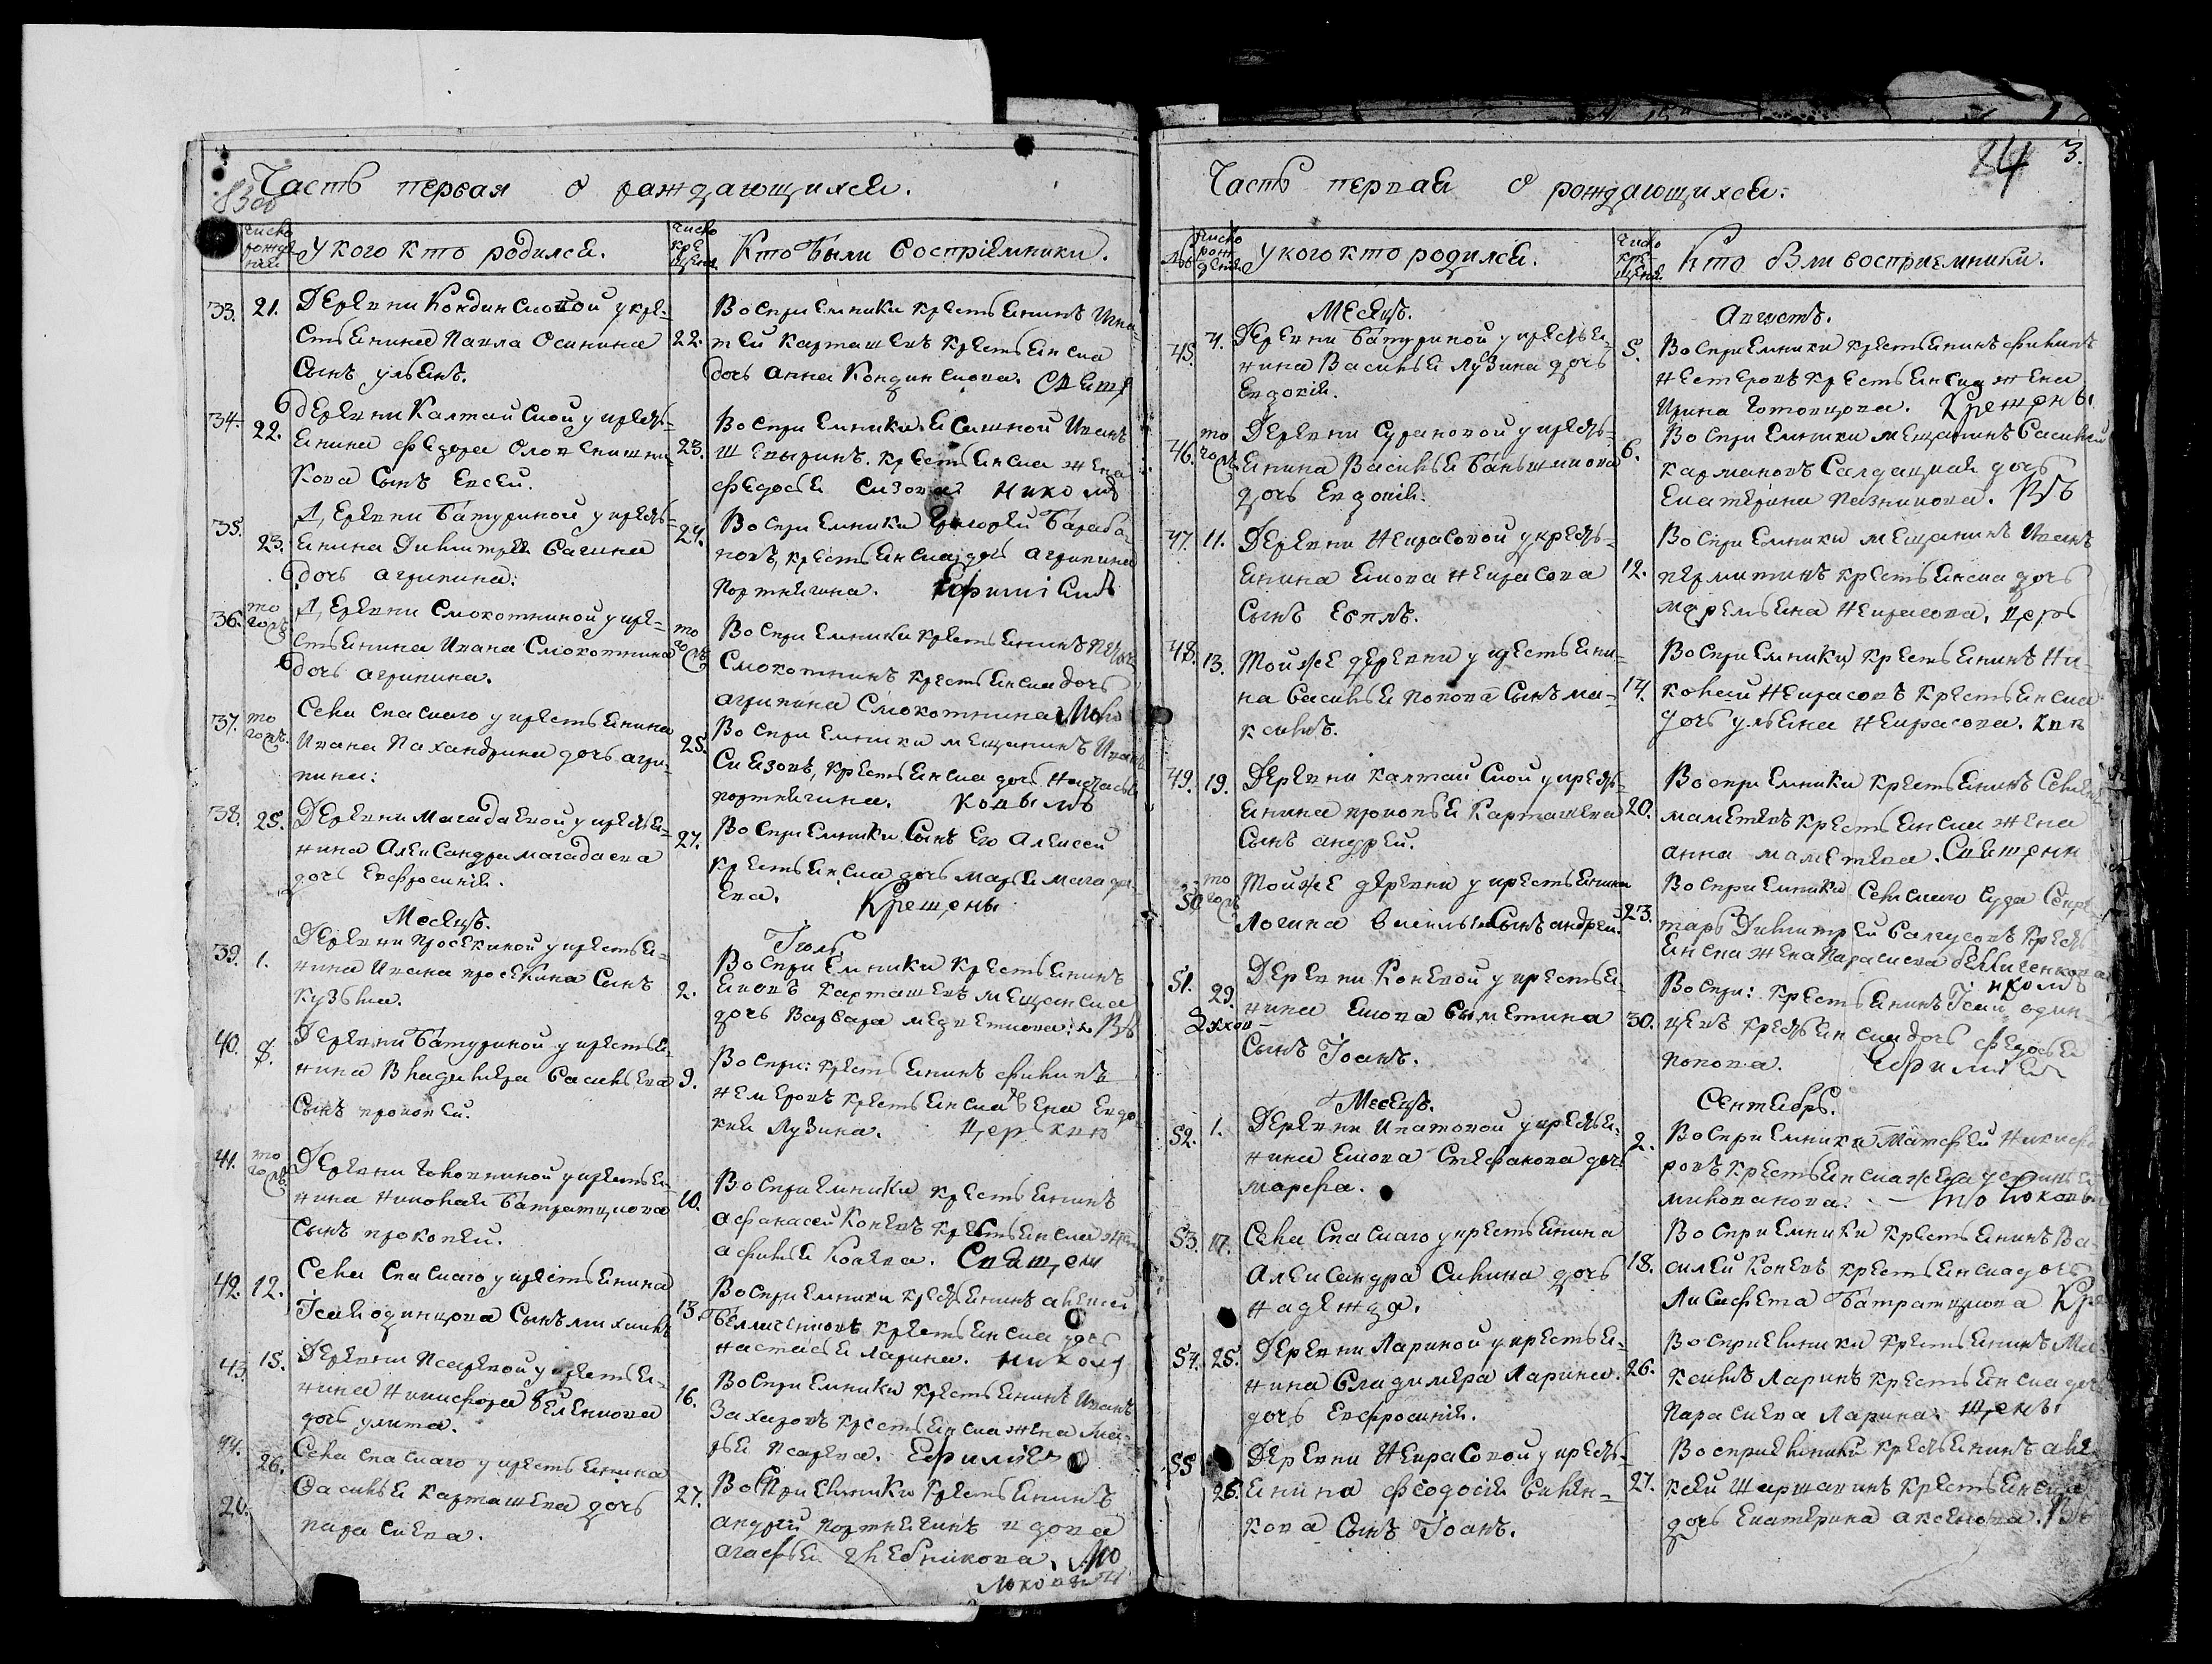 Часть первая о раждающихся.
число рожде нии
У кого кто родился.
число кре щения
Кто были восприемники.
33. 21. Деревни Кондинсковой у кре-
стьянина Павла Осипина
сынъ ульянъ.
22. Восприемники крестьянинъ Игна-
тей Карташевъ крестьянска
дочь анна Кондинскова. Свящ
34. 22. деревни Калтайской у кресть-
янина федора Оловенишни-
кова сынъ Евсей.
23. Восприемники ясашной Иванъ
Шевыринъ. крестьянска жена
федосья Сизова николъ
35. 23. Деревни Батуриной у кресть-
янина Димитрея Вагина
дочь агрипина:
24. Восприемники Григорей Бараба-
новъ, крестьянска дочь агрипина
Портнягина. Ефиміемъ
36. того числ. Деревни Смокотниной у кре-
стьянина Ивана Смокотнина
дочь агрипина.
того числ. Восприемники крестьянинъ
Смокотнинъ крестьянска дочь
агрипина Смокотнина Моко
37. того числ. Села Спаскаго у крестьянина
Ивана Паландина дочь агри-
пина:
25. Восприемники мещанинъ Иванъ
Сизовъ, крестьянска дочь Настасья
портнягина. ковымъ
38. 25. Деревни Магадаевой у крестья-
нина Александра магадаева
дочь Евфросинія.
27. Восприемники Сынъ Его Алексей
крестьянска дочь марья магада-
ева. Крещены
Месяцъ.
Іюль
39. 1. Деревни Просекиной у крестья-
нина Ивана просекина сынъ
Кузьма.
2. Восприемники крестьянинъ
яковъ карташевъ мещанска
дочь Варвара медветкова: Въ
40. 8. Деревни Батуриной у крестья-
нина Владимера Васильева
сынъ прокопей.
9. Воспри: крестьянинъ филипъ
немеровъ крестьянска жена Евдо-
кия Лузина. церкви
41. того числ. Деревни Головниной у крестья-
нина николая Батраткова
сынъ прокопей.
10. Восприемники крестьянинъ
афанасей Коневъ крестьянска жена
афимья Конева. Священ
42. 12. Села Спаскаго у крестьянина
Ісаи одинцова сынъ михаилъ
13. Восприемники крестьянинъ алексей
Белличенковъ крестьянска дочь
настасья Ларина. николя
43. 15. Деревни Псаревой у крестья-
нина никифора Беленкова
дочь улита.
16. Восприемники крестьянинъ Иванъ
Захаровъ крестьянска жена Ма-
рья Псарева. Ефимія
44. 26. Села Спаскаго у крестьянина
Василья Карташева дочь
параскева.
20.
27. Восприемники крестьянинъ
андрей портнягинъ и дова
агафья хлебникова. Мо
Моковы
84 3.
Часть первая о рождающихся.
число рож дения
У кого кто родился.
число кре щения
Кто были восприемники.
Месяцъ.
Августъ.
45. 4. Деревни Батуриной у крестья-
нина Василья Лузина дочь
Евдокія.
5. Восприемники крестьянинъ филипъ
нестеровъ крестьянска жена
Ирина Готовцова. Крещены
46. того числ. Деревни Сурановой у кресть-
янина Василья Баньщикова
дочь Евдокія.
6. Восприемники мещанинъ Василей
кармановъ Салдацкая дочь
Екатерина Пазникова. Въ
47. 11. Деревни Некрасовой у кресть-
янина якова Некрасова
сынъ Есипъ.
12. Восприемники мещанинъ Иванъ
пермитинъ крестьянска дочь
маремьяна Некрасова, церк
48. 13. Тойже деревни у крестьяни-
на Василья попова сынъ ма-
ксимъ.
14. Восприемники, крестьянинъ Ни-
колай Некрасовъ крестьянска
дочь ульяна Некрасова. кви
49. 19. Деревни калтайской у кресть-
янина прокопья Карташева
сынъ андрей.
20. Восприемники крестьянинъ
маметевъ крестьянска жена
анна маметева. Священн
50. того числ. Тойже деревни у крестьянина
Логина Васильева сынъ андрей.
23. Восприемники Сельскаго Суда Секре-
тарь Димитрей Валгусовъ кресть-
янска жена Параскева белличенкова
икомъ
51. 29. Деревни Коневой у крестья-
нина якова Вымятнина
сынъ Іоанъ.
30. Воспри: крестьянинъ Ісай один-
цевъ крестьянска дочь федосья
попова. Ефиміем
Месяцъ.
Сентябрь.
52. 1. Деревни Ипатовой у крестья-
нина якова Стефанова дочь
марфа.
2. Восприемники Матфей Никифо
ровъ крестьянска жена устинья
милованова. — Мо Моковы
53. 17. Села Спаскаго у крестьянина
Александра Силина дочь
надежда.
18. Восприемники крестьянинъ Ва-
силей Коневъ крестьянска дочь
Лисафета Батраткова Кре
54. 25. Деревни Лариной у крестья-
нина Владимера Ларина.
дочь Евфросинія.
26. Восприемники крестьянинъ Ма-
ксимъ Ларинъ крестьянска дочь
Параскева Ларина. щены
55 26. Деревни Некрасовой у кресть-
янина феодосія Силен-
кова сынъ Іоанъ.
27. Восприемники крестьянинъ але
ксей Шаршавинъ крестьянска
дочь Екатерина аксенова. Въ